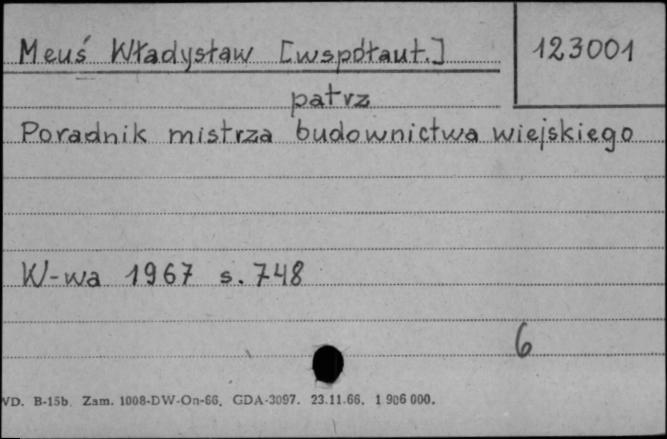 Meuś Władysław [współaut.] 123001
patrz
Poradnik mistrza budownictwa wiejskiego
W-wa 1967 s. 748
6
VD. B-15b. Zam. 1008-DW-On-66. GDA-3097. 23.11.66. 1 906 000.